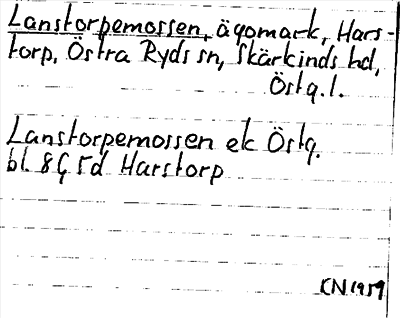 Lanstorpemossen, ägomark, Hars-
torp, Östra Ryds sn, Skärkinds hd,
Östg.l.
Lanstorpemossen ek Östg.
bl. 8Ç 5d Harstorp
CN 1959